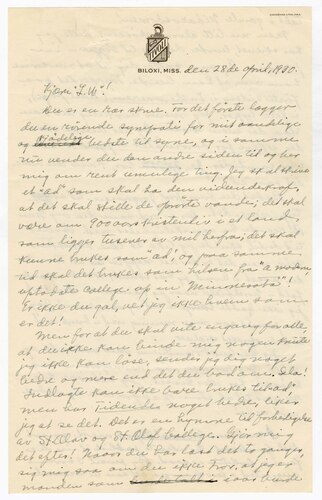 BILOXI, MISS. den 28de april, 1930.
Kjære "L.W."!
Du er en rar skrue. For det første lægger
du en rørende sympati for mit aandelige
og velfærd til syne, og i samme
nu vender du den andre siden til og ber
mig om rent umulige ting. Jeg skal skrive
et "ad" som skal ha den vidunderkraft
at det skal stille de største vande; det skal
være om 9000 kristenliv i et land
som ligger tusener av mil herfra; det skal
kunne brukes som "ad", og paa samme
tid skal det brukes som hilsen fra "a modern
up to date College up in Minnesota"!
Er ikke du gal, vet jeg ikke hvem som
er det!
Men for at du skal vite engang for alle,
at du ikke kan binde mig nogen knute
jeg ikke kan løse, sender jeg dig noget
bedre og mere end det du bad om. Da!
Indlagte kan ikke bare brukes til "ad"
men har Tidende noget bedre, liker
jeg at se det. Det er en hymne til forherligelse
av St. Olav og St. Olaf College. Gjør mig
det efter! Naar du har læst det to ganger,
sig mig saa om du ikke tror, at jeg er
manden som i saar burde